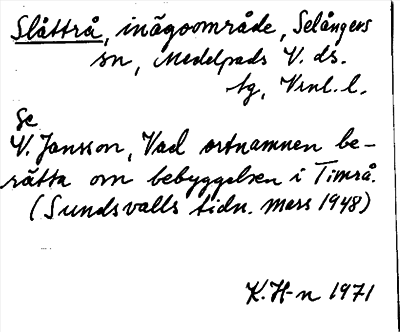 Slåttrå, inägoområde, Selångers
sn, Medelpads V. ds.
tg, Vrnl. l.
Se
V. Jansson, Vad ortnamnen be-
rätta om bebyggelsen i Timrå.
(Sundsvalls tidn. mars 1948)
K. H-n 1971